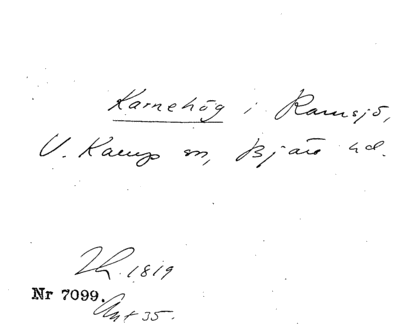 Karnehög i Ramsjö,
V. Karup sn, Bjäre hd.
Th. 1819
Nr 7099.
Ant 35.